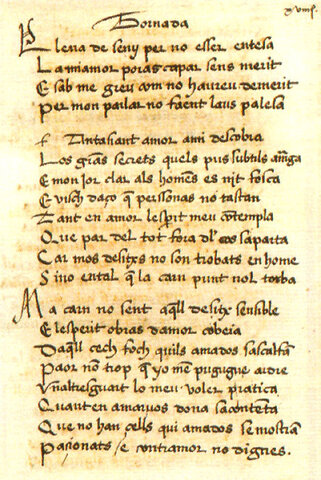 Tornada
Plena de seny per no esser entesa
La miamor poras gapar sens merit
E sab me greu com no haureu demerit
Per mon parlar no faent laus palesa
Fantasiant amor ami descobra
Los grãs secrets quels pus subtils amãga
E mon jor clar als homẽs es nit fosca
E visch daço q̃ perssonas no tastan
Tant en amor lesperit meu cõtempla
Que par del tot fora dl' cos saparta
Car mos desitxs no son trobats en home
Sino ental q̃ la carn punt nol torba
Ma carn no sent aq̃ll desitx sensible
E lesperit obras damor cobeia
Daq̃ll cech foch quils amados sascalfã
Paor nõ trop q̃ yo mẽ pugugue ardre
Vnaltresguart lo meu voler pratica
Quant en amarvos dona sacontẽta
Que no han çells qui amados se mostrã
Pacionats / e contramor no dignes.